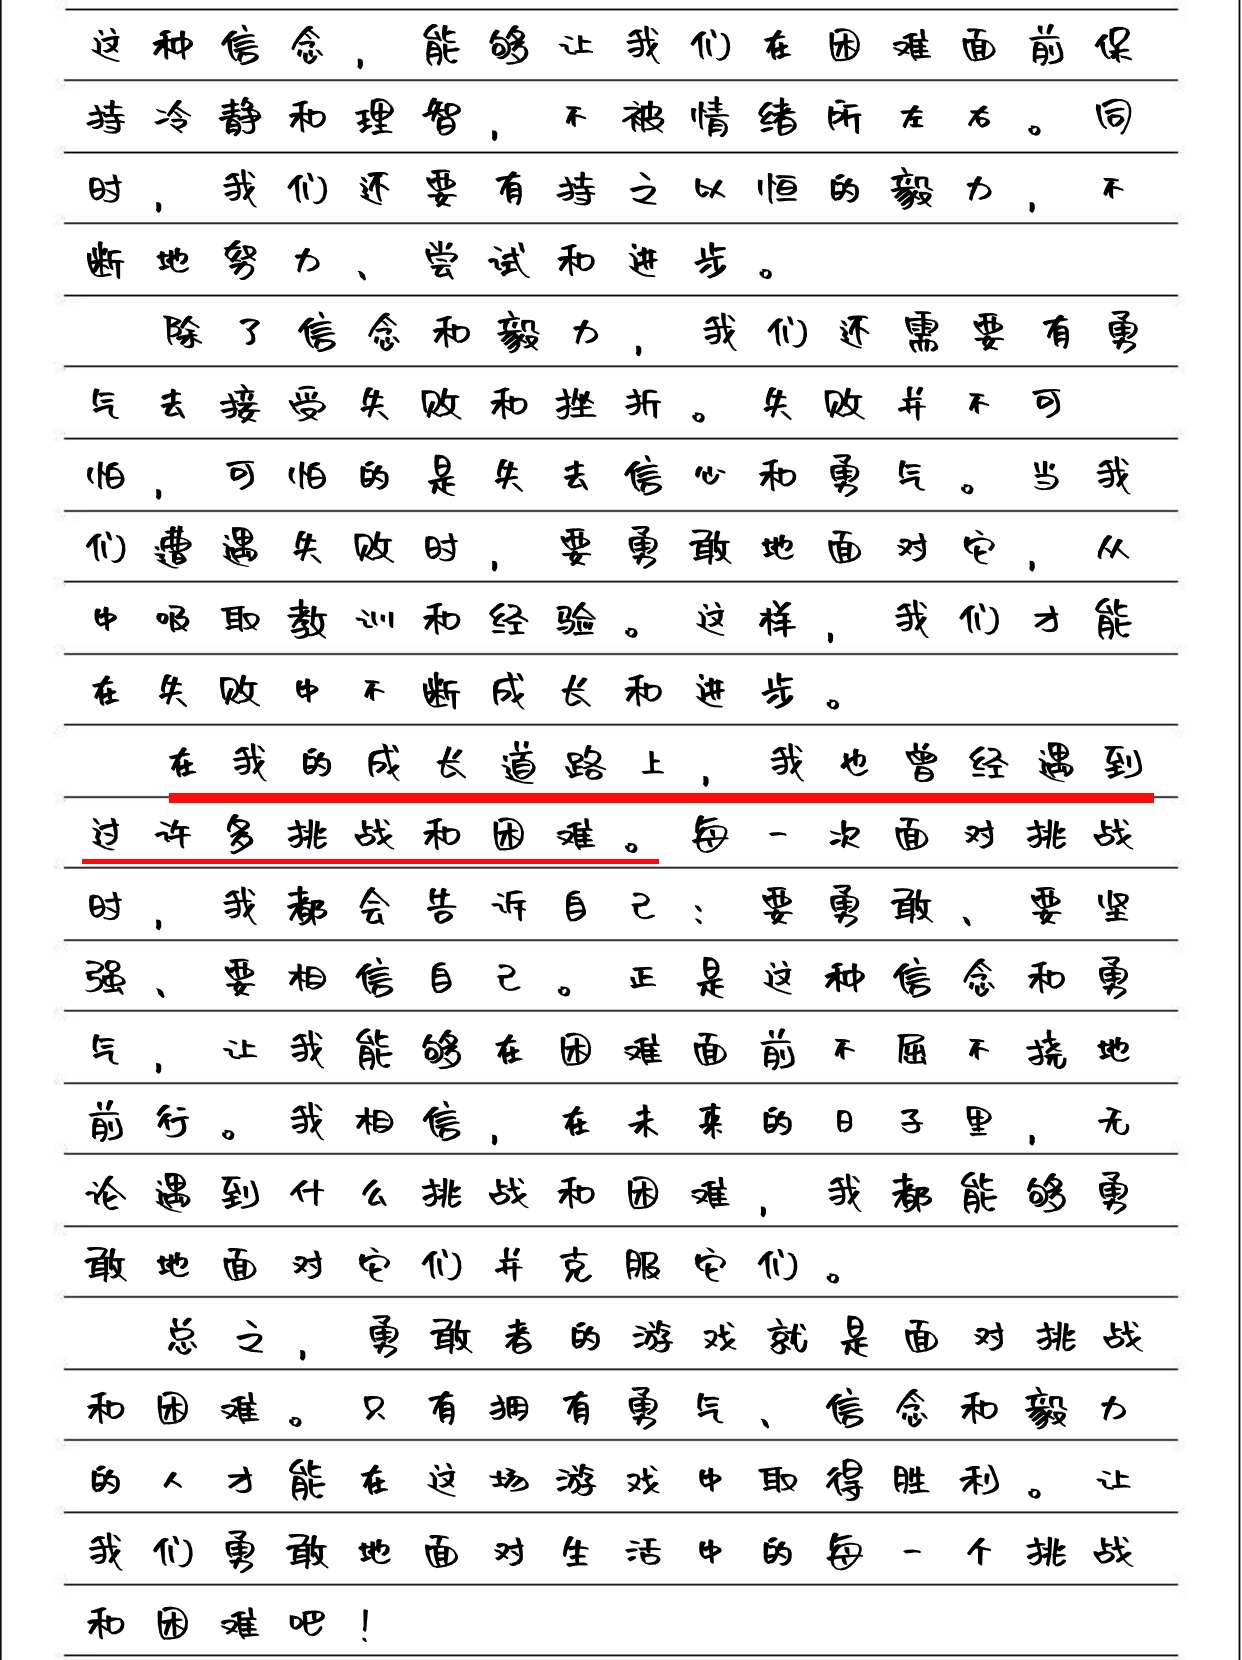 这种信念，能够让我们在困难面前保
持冷静和理智，不被情绪所左右。同
时，我们还要有持之以恒的毅力，不
断地努力、尝试和进步。
除了信念和毅力，我们还需要有勇
气去接受失败和挫折。失败并不可
怕，可怕的是失去信心和勇气。当我
们遭遇失败时，要勇敢地面对它，从
中吸取教训和经验。这样，我们才能
在失败中不断成长和进步。
在我的成长道路上，我也曾经遇到
过许多挑战和困难。每一次面对挑战
时，我都会告诉自己：要勇敢、要坚
强、要相信自己。正是这种信念和勇
气，让我能够在困难面前不屈不挠地
前行。我相信，在未来的日子里，无
论遇到什么挑战和困难，我都能够勇
敢地面对它们并克服它们。
总之，勇敢者的游戏就是面对挑战
和困难。只有拥有勇气、信念和毅力
的人才能在这场游戏中取得胜利。让
我们勇敢地面对生活中的每一个挑战
和困难吧！